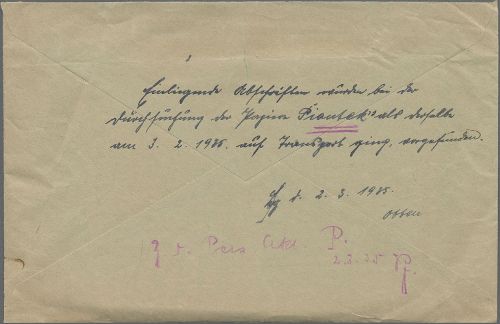 Einliegende Abschriften wurden bei der
Durchsuchung der Papiere Piontek's als derselbe
am 3. 2. 1935. auf Transport ging, vorgefunden.
d. 2. 3. 1935.
Pers Akt. P.
2.3.35